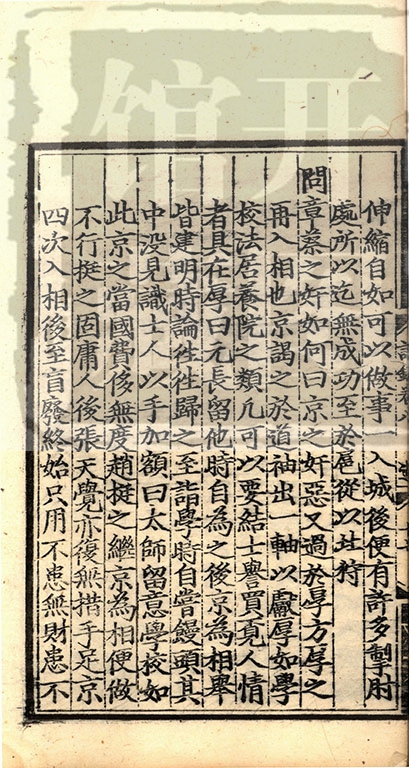 伸縮自如可以做事一入城後便有許多掣肘
處所以迄無成功至於扈從以北狩
問章蔡之奸如何曰京之奸惡又過於厚方厚之
再入相也京謁之於道袖出一軸以獻厚如學
校法居養院之類凡可以要結士譽買覓人情
者具在厚曰元長留他時自為之後京為相舉
皆建明時論往往歸之至詣學時自嘗饅頭其
中沒見識士人以手加額曰太師留意學校如
此京之當國費侈無度趙挺之繼京為相便做
不行挺之固庸人後張天覺亦復無措手足京
四次入相後至盲廢終始只用不患無財患不
開
館